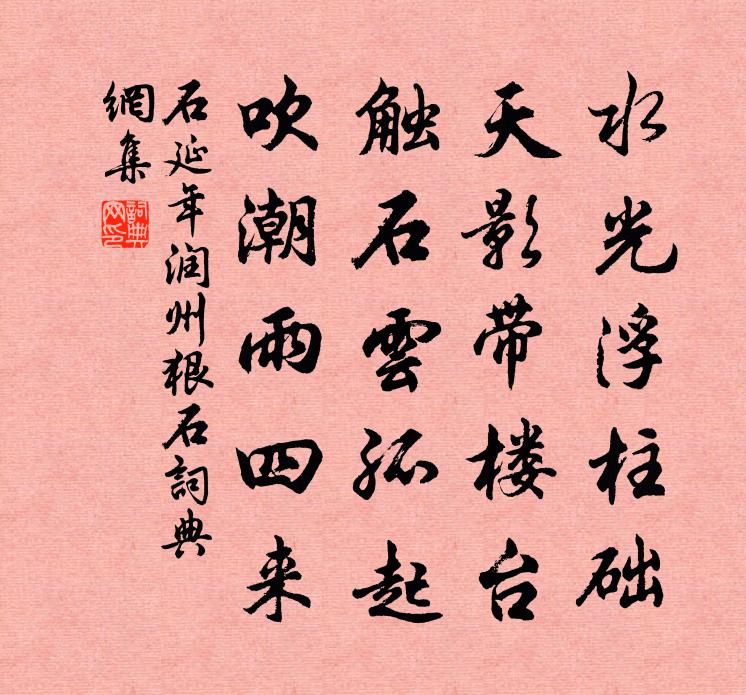 水光浮柱础
天影带楼台
触石雲孤起
吹潮雨四来
石延年润州狠石詞典
網集
詞典網印